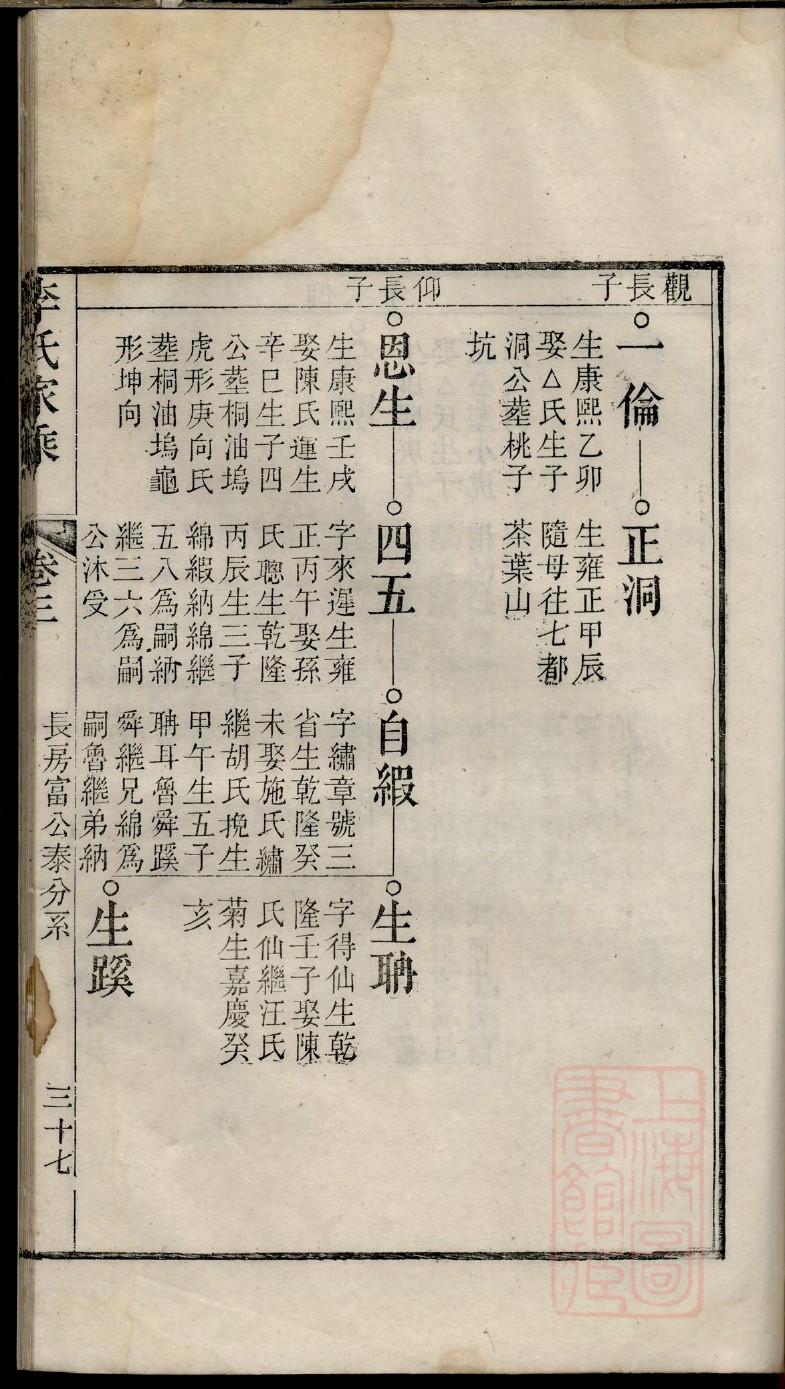 觀長子
一倫
生康熙乙卯
娶△氏生子
洞公塟桃子
坑
正洞
生雍正甲辰
隨母往七都
茶葉山
仰長子
恩生
生康熙壬戌
娶陳氏運生
辛巳生子四
公塟桐油塢
虎形庚向氏
塟桐油塢龜
形坤向
四五
字來遲生雍
正丙午娶孫
氏聰生乾隆
丙辰生三子
綿緞納綿繼
五八爲嗣納
繼三六爲嗣
公沐受
自緞
字繡章號三
省生乾隆癸
未娶施氏繡
繼胡氏挽生
甲午生五子
聃耳魯舜蹊
舜繼兄綿爲
嗣魯繼弟納
生聃
字得仙生乾
隆壬子娶陳
氏仙繼汪氏
菊生嘉慶癸
亥
生蹊
李氏家乘
卷三
長房富公泰分系
三十七
上海圖書館藏